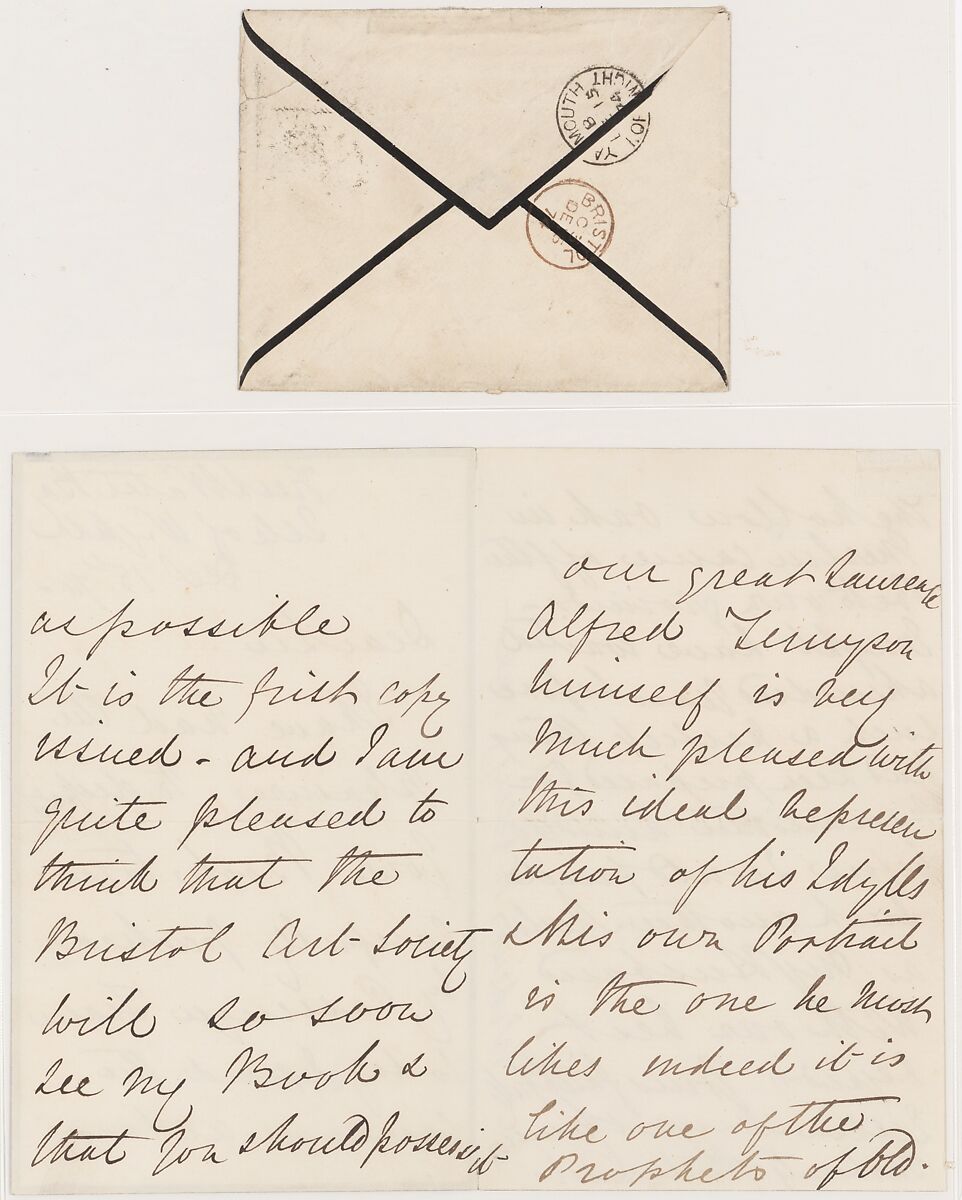 YARMOUTH I. OF WIGHT
BRISTOL
DE
as possible
It is the first copy
issued - and I am
quite pleased to
think that the
Bristol Art Society
will so soon
see my Book &
that you should possess it
our great Laureate
Alfred Tennyson
himself is very
much pleased with
this ideal represen
tation of his Idylls
& this own Portrait
is the one he most
likes indeed it is
like one of the
Prophets of Old.